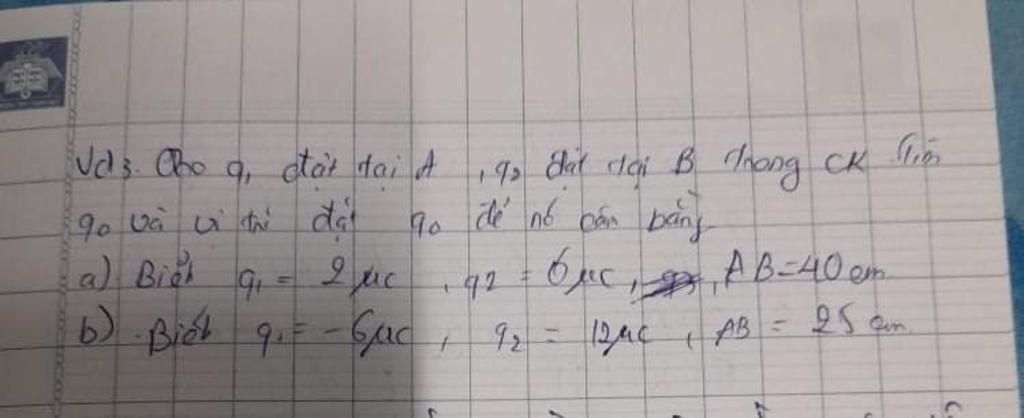 Vd3. Cho q₁ đặt tại A, q₂ đặt tại B trong CK Tìm
q₀ và vị trí đặt q₀ để nó cân bằng
a) Biết q₁ = 2 μC, q2 = 6 μC, AB = 40 cm
b) Biết q₁ = -6 μC, q₂ = 12 μC, AB = 25 cm.